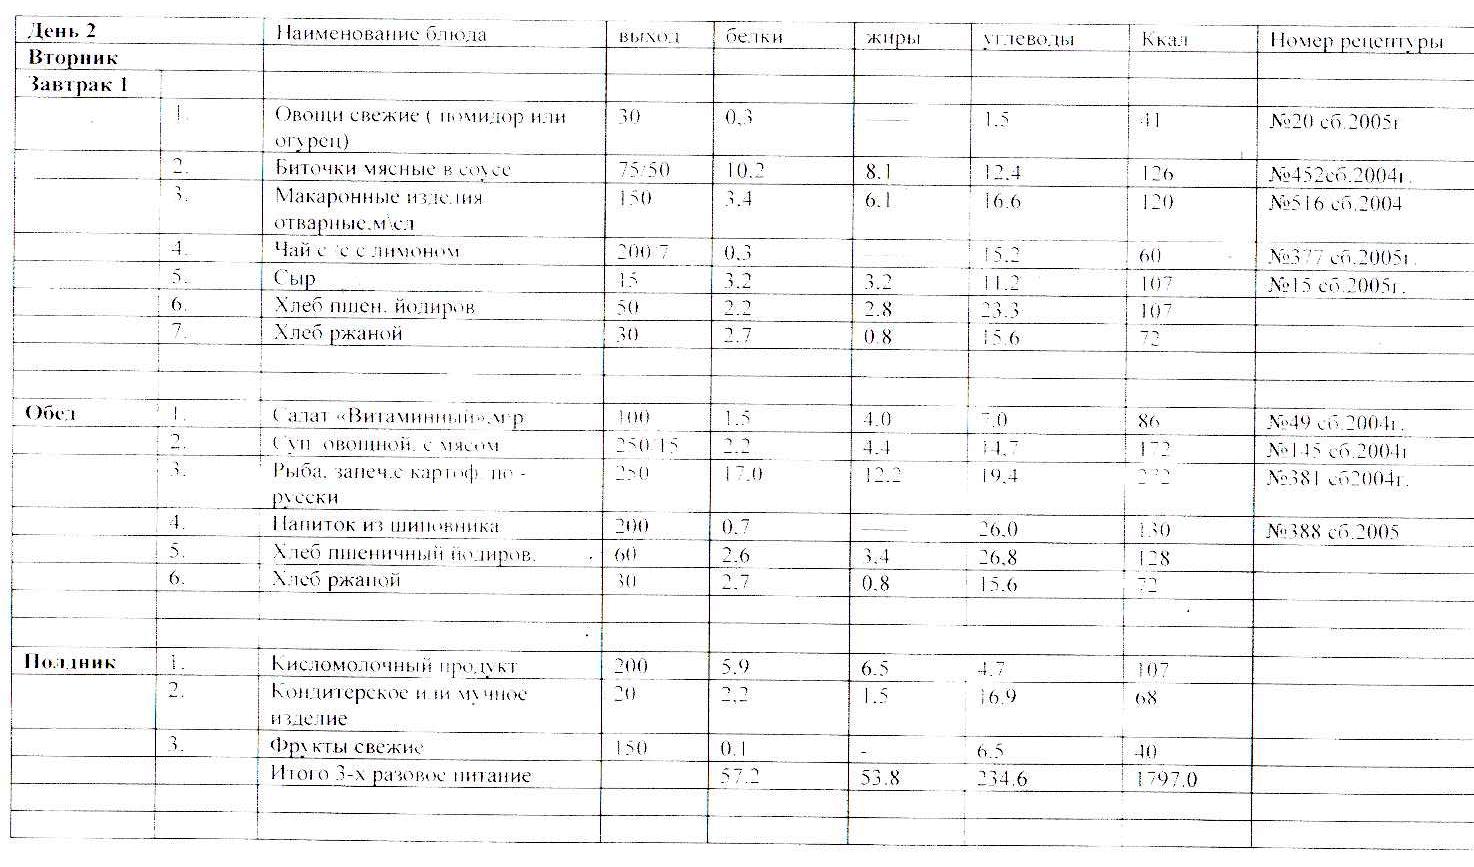 День 2 Наименование блюда выход белки жиры углеводы Ккал Номер рецептуры
Вторник
Завтрак 1
1. Овощи свежие ( помидор или 30 0,3 —— 1.5 41 №20 сб.2005г
огурец)
2. Биточки мясные в соусе 75/50 10.2 8.1 12.4 126 №452сб.2004г.
3. Макаронные изделия 150 3.4 6.1 16.6 120 №516 сб.2004
отварные,м\сл
4. Чай с /с с лимоном 200/7 0,3 —— 15.2 60 №377 сб.2005г.
5. Сыр 15 3.2 3.2 11.2 107 №15 сб.2005г.
6. Хлеб пшен. йодиров 50 2.2 2.8 23.3 107
7. Хлеб ржаной 30 2.7 0.8 15.6 72
Обед 1. Салат «Витаминный»,м/р 100 1.5 4.0 7.0 86 №49 сб.2004г.
2. Суп овощной, с мясом 250/15 2.2 4.4 14.7 172 №145 сб.2004г
3. Рыба, запеч.с картоф. по - 250 17.0 12.2 19.4 №381 сб2004г.
русски
4. Напиток из шиповника 200 0.7 —— 26.0 130 №388 сб.2005
5. Хлеб пшеничный йодиров. 60 2.6 3.4 26.8 128
6. Хлеб ржаной 30 2.7 0.8 15.6 72
Полдник 1. Кисломолочный продукт 200 5.9 6.5 4.7 107
2. Кондитерское или мучное 20 2.2 1.5 16.9 68
изделие
3. Фрукты свежие 150 0.1 - 6.5 40
Итого 3-х разовое питание 57.2 53.8 234.6 1797.0